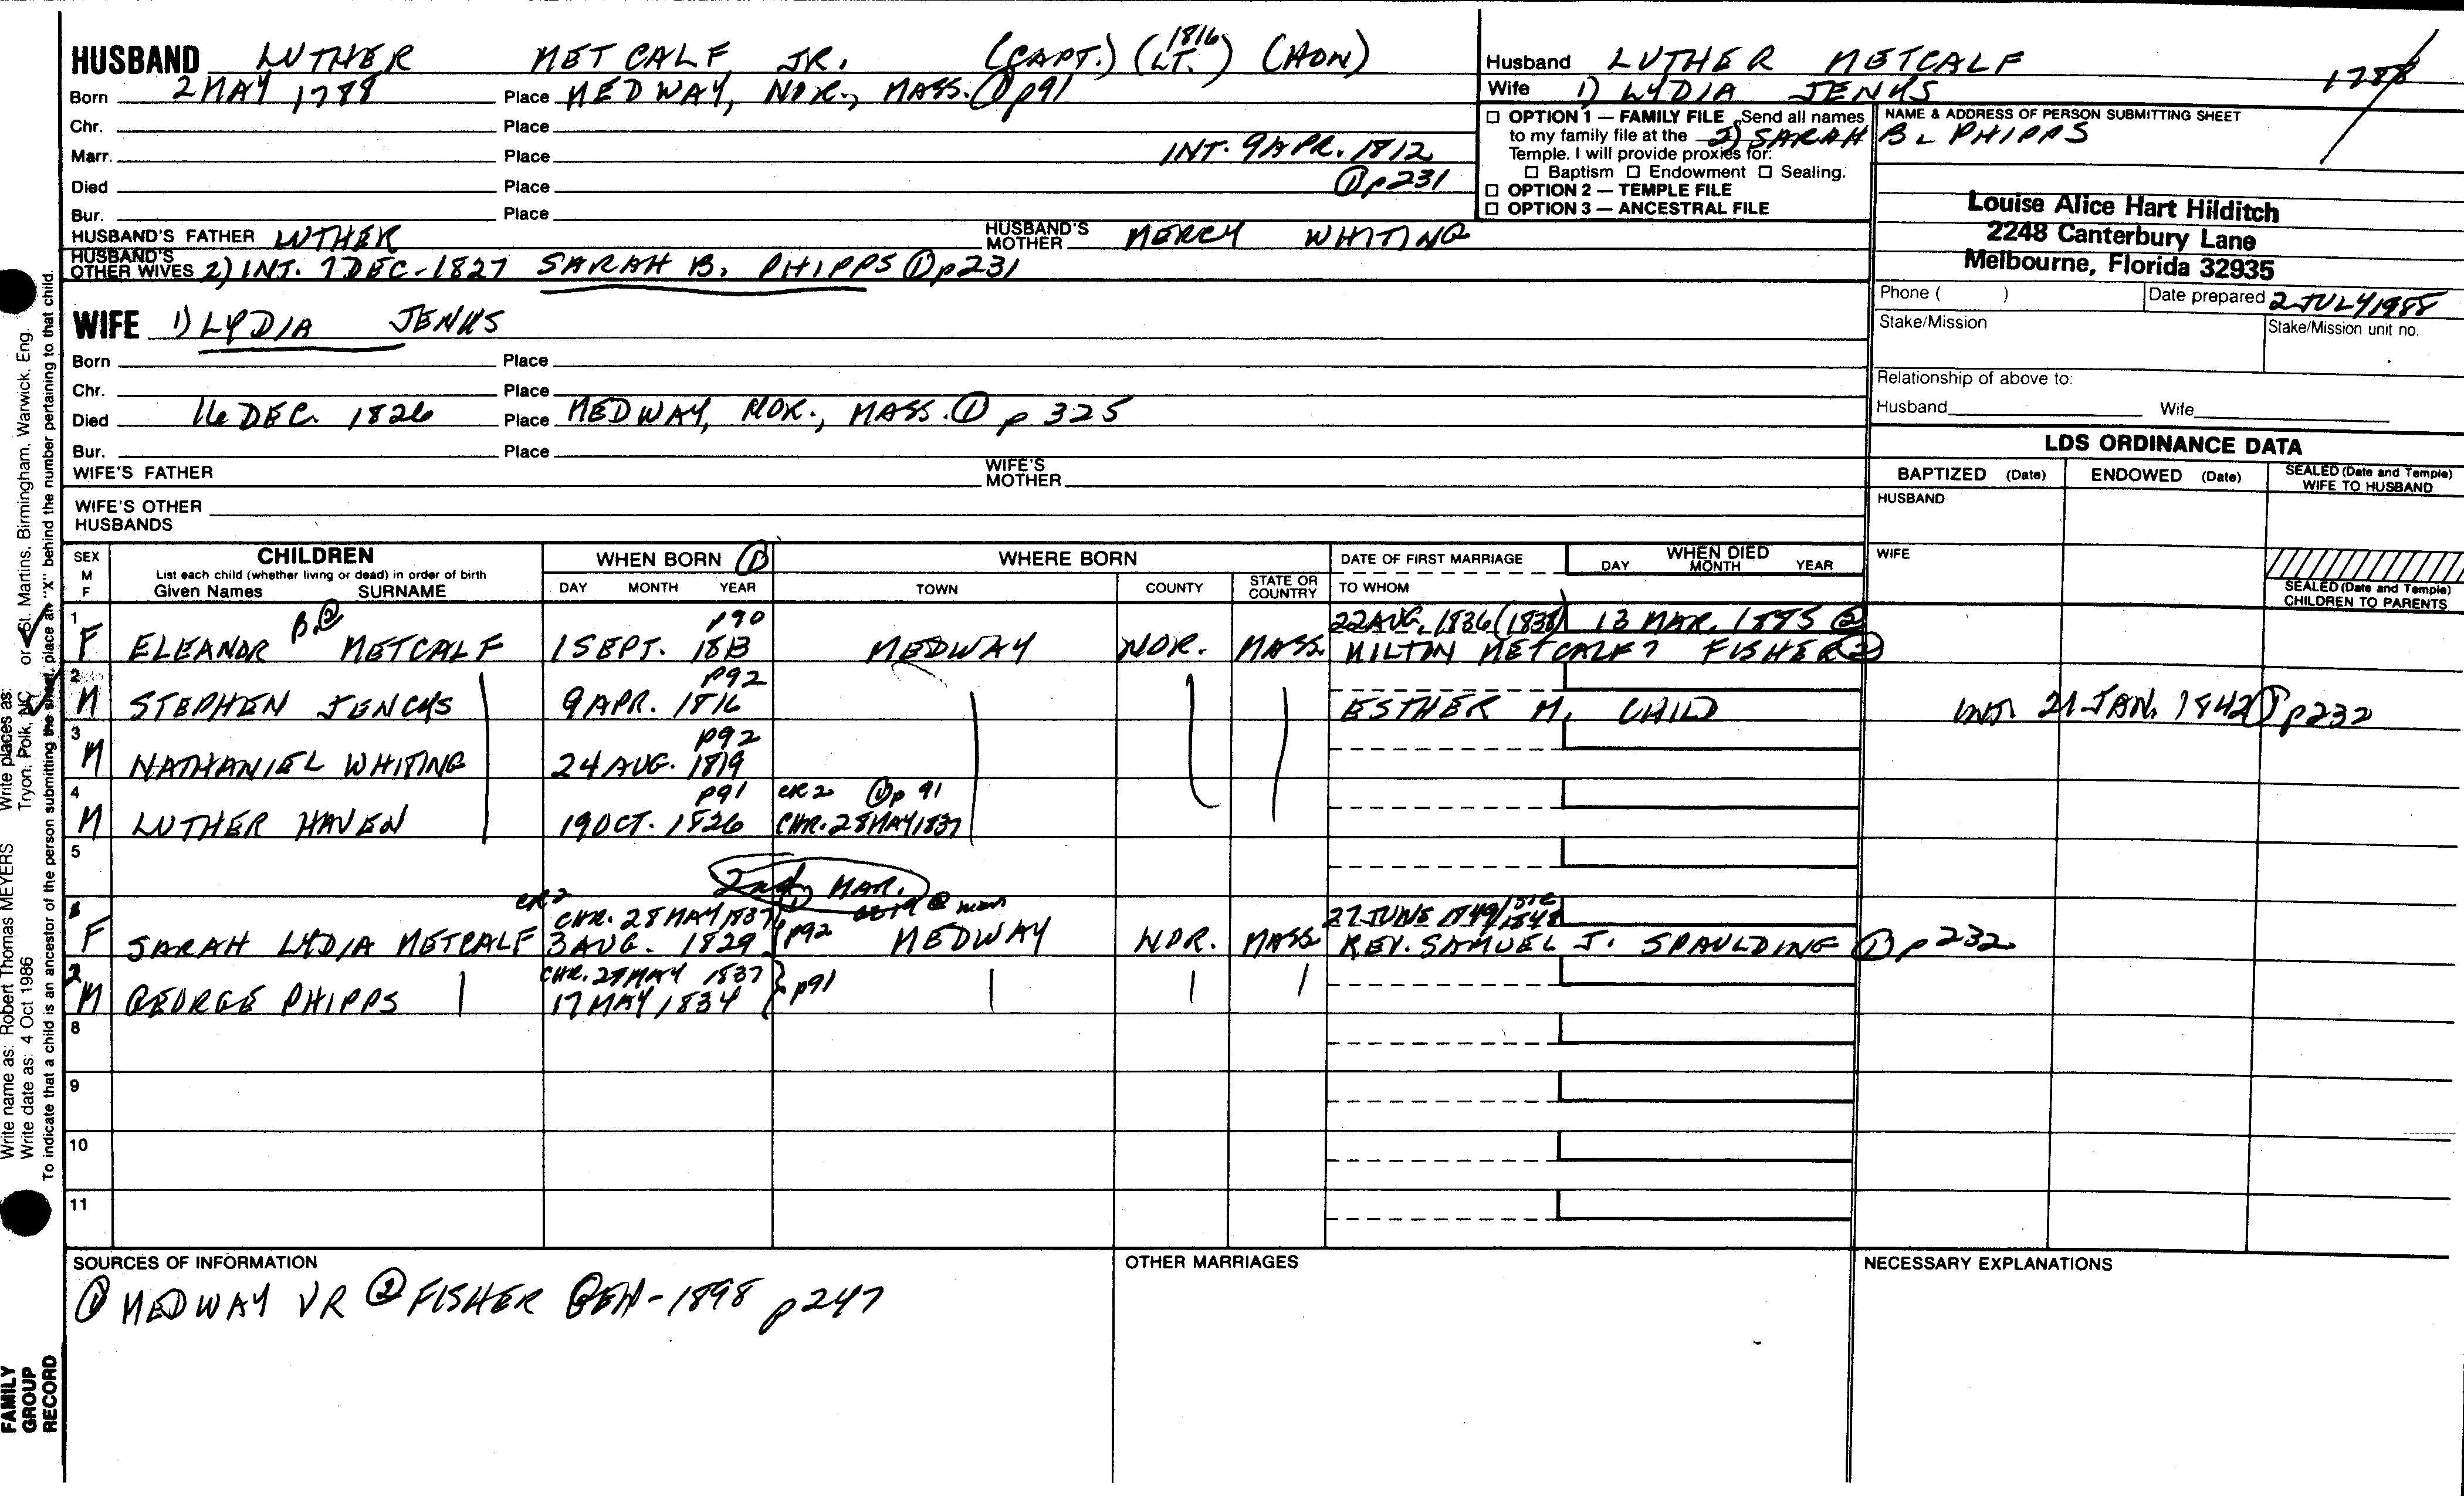 HUSBAND LUTHER METCALF JR. (CAPT.) (LT. 1816) (HON)
Born 2 MAY 1788 Place MEDWAY, NOR., MASS. ① p91
Chr. Place
Marr. Place INT. 9 APR. 1812
Died Place ① p231
Bur. Place
HUSBAND'S FATHER LUTHER HUSBAND'S MOTHER MERCY WHITING
HUSBAND'S OTHER WIVES 2) INT. 7 DEC-1827 SARAH B. PHIPPS ① p231
WIFE 1) LYDIA JENKS
Born Place
Chr. Place
Died 16 DEC. 1826 Place MEDWAY, NOR., MASS. ① p 325
Bur. Place
WIFE'S FATHER WIFE'S MOTHER
WIFE'S OTHER HUSBANDS
Husband LUTHER METCALF 1788
Wife 1) LYDIA JENKS
2) SARAH B. PHIPPS
☐ OPTION 1 — FAMILY FILE Send all names
to my family file at the
Temple. I will provide proxies for:
☐ Baptism ☐ Endowment ☐ Sealing.
☐ OPTION 2 — TEMPLE FILE
☐ OPTION 3 — ANCESTRAL FILE
NAME & ADDRESS OF PERSON SUBMITTING SHEET
Louise Alice Hart Hilditch
2248 Canterbury Lane
Melbourne, Florida 32935
Phone ( ) Date prepared 2 JULY 1988
Stake/Mission Stake/Mission unit no.
Relationship of above to:
Husband Wife
LDS ORDINANCE DATA
BAPTIZED (Date) ENDOWED (Date) SEALED (Date and Temple) WIFE TO HUSBAND
HUSBAND
WIFE
SEALED (Date and Temple) CHILDREN TO PARENTS
SEX M F CHILDREN List each child (whether living or dead) in order of birth Given Names SURNAME
WHEN BORN ① DAY MONTH YEAR
WHERE BORN TOWN COUNTY STATE OR COUNTRY
DATE OF FIRST MARRIAGE TO WHOM
WHEN DIED DAY MONTH YEAR
1 B.② p90 22 AUG. 1836 (1838) 13 MAR. 1885 ②
F ELEANOR METCALF 1 SEPT. 1813 MEDWAY NOR. MASS MILTON METCALF? FISHER ②
2 p92
M STEPHEN JENCKS 9 APR. 1816 ESTHER M. CHILD INT. 21 JAN. 1842 ① p232
3 p92
M NATHANIEL WHITING 24 AUG. 1819
4 p91 CR2 ① p 91
M LUTHER HAVEN 19 OCT. 1826 CHR. 28 MAY 1837
5
2nd MAR.
6 CR2 CHR. 28 MAY 1837 27 JUNE 1849/1848
F SARAH LYDIA METCALF 3 AUG. 1829 p92 MEDWAY NOR. MASS REV. SAMUEL J. SPAULDING ① p232
7 CHR. 28 MAY 1837
M GEORGE PHIPPS 17 MAY 1834 p91
8
9
10
11
SOURCES OF INFORMATION
① MEDWAY VR ② FISHER GEN-1898 p247
OTHER MARRIAGES
NECESSARY EXPLANATIONS
Write name as: Robert Thomas MEYERS Write places as:
Write date as: 4 Oct 1986 Tryon, Polk, NC or St. Martins, Birmingham, Warwick, Eng.
To indicate that a child is an ancestor of the person submitting the sheet, place an "X" behind the number pertaining to that child.
FAMILY
GROUP
RECORD